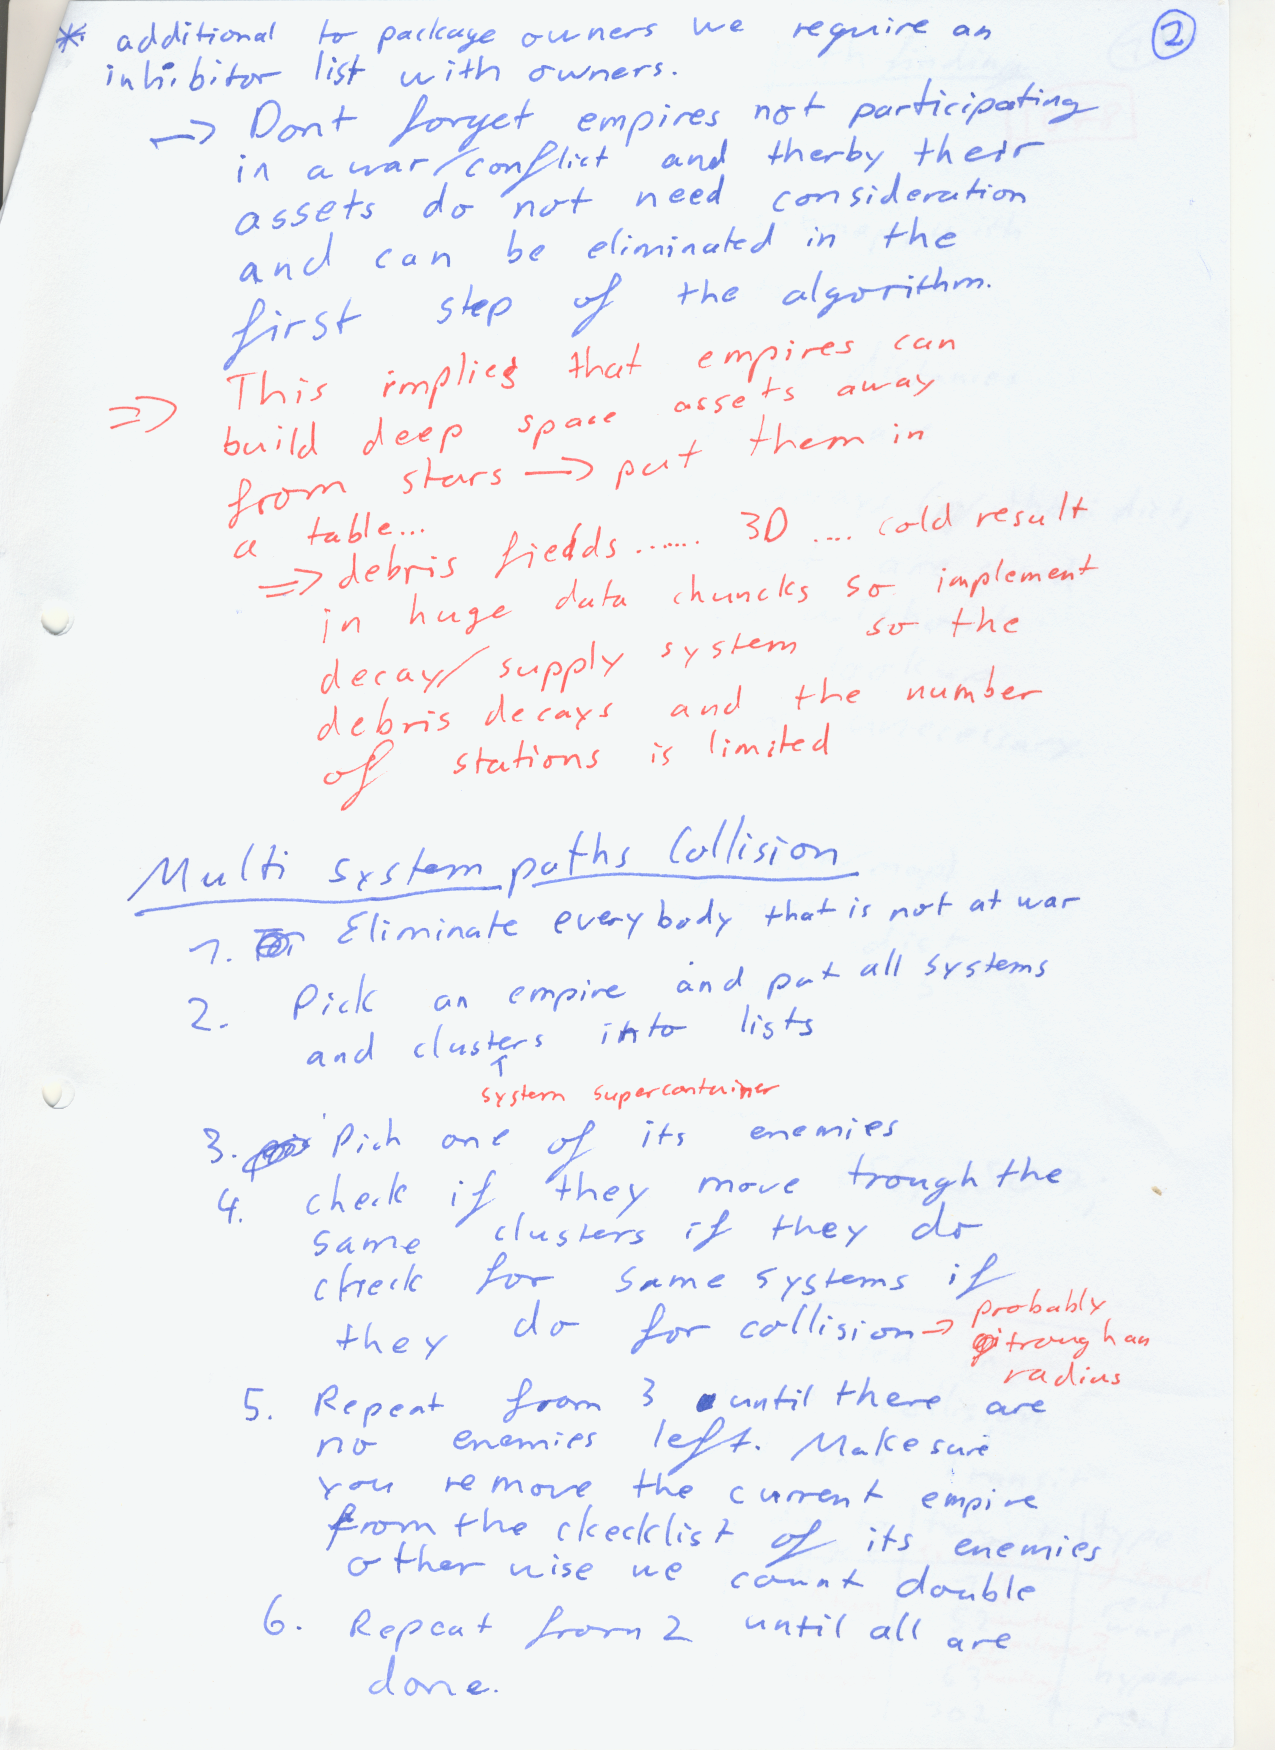 * additional to package owners we require an
②
inhibitor list with owners.
→ Dont forget empires not participating
in a war/conflict and therby their
assets do not need consideration
and can be eliminated in the
first step of the algorithm.
⇒ This implies that empires can
build deep space assets away
from stars → put them in
a table...
⇒ debris fields ....... 3D .... cold result
in huge data chuncks so implement
decay/supply system so the
debris decays and the number
of stations is limited
Multi system paths Collision
1. Eliminate everybody that is not at war
2. Pick an empire and put all systems
and clusters into lists
↑
system supercontainer
3. Pich one of its enemies
4. check if they move trough the
same clusters if they do
check for same systems if
they do for collision → probably
trough an
radius
5. Repeat from 3 until there are
no enemies left. Make sure
you remove the current empire
from the checklist of its enemies
other wise we count double
6. Repeat from 2 until all are
done.